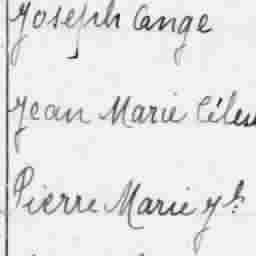 Joseph Ange
Jean Marie Céles
Pierre Marie Jh